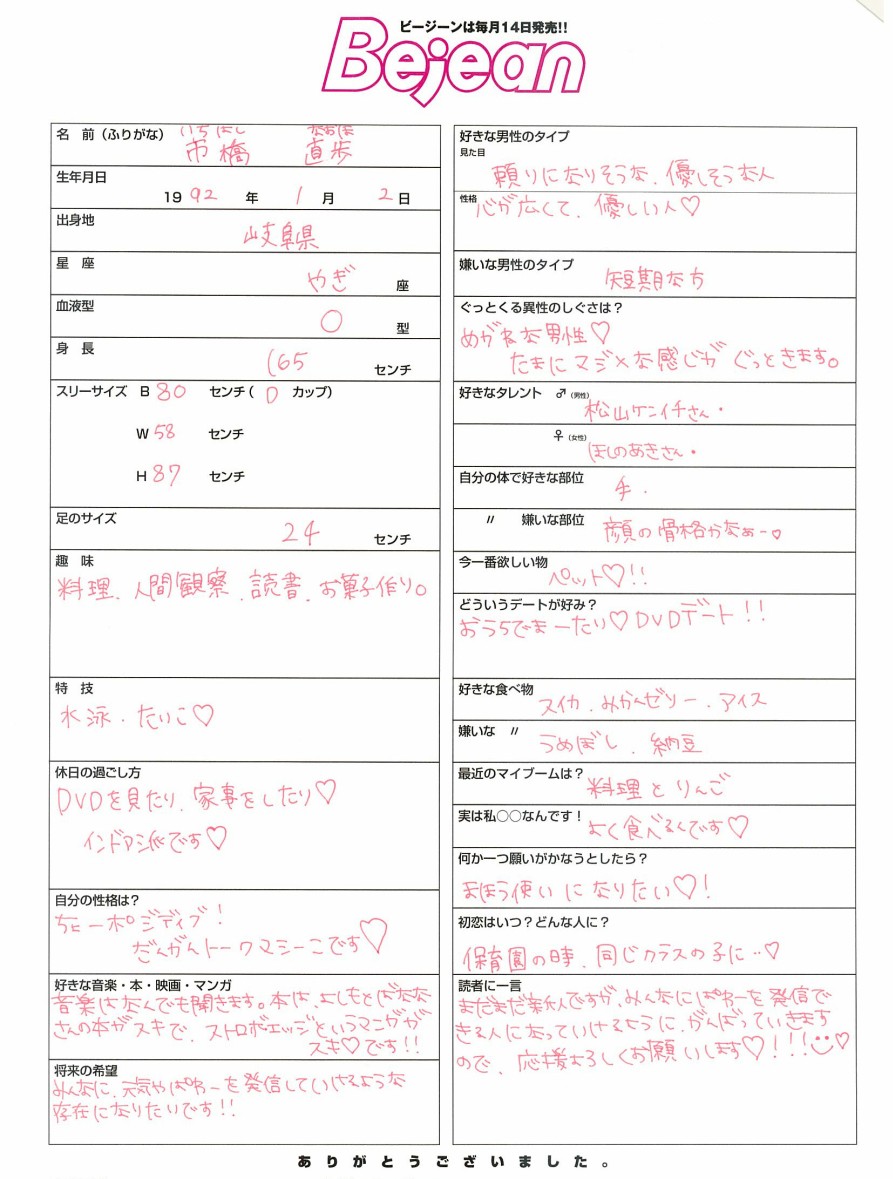 ビージーンは毎月14日発売!!
Bejean
名　前（ふりがな）
いちはし　なおほ
市橋　直歩
生年月日
1992年　1月　2日
出身地
岐阜県
星　座
やぎ　座
血液型
O　型
身　長
165　センチ
スリーサイズ　B 80　センチ（ D カップ）
W 58　センチ
H 87　センチ
足のサイズ
24　センチ
趣　味
料理、人間観察、読書、お菓子作り。
特　技
水泳・たいこ♡
休日の過ごし方
DVDを見たり、家事をしたり♡
インドア派です♡
自分の性格は？
ちょーポジディブ！
だんがんトークマシーンです♡
好きな音楽・本・映画・マンガ
音楽はなんでも聞きます。本は、よしもとばなな
さんの本がスキで、ストロボエッジというマンガが
スキ♡です!!
将来の希望
みんなに、元気やぱわーを発信していけるような
存在になりたいです!!
好きな男性のタイプ
見た目
頼りになりそうな、優しそうな人
性格
心が広くて、優しい人♡
嫌いな男性のタイプ
短期な方
ぐっとくる異性のしぐさは？
めがねな男性♡
たまにマジメな感じが ぐっときます。
好きなタレント　♂（男性）
松山ケンイチさん・
♀（女性）
ほしのあきさん・
自分の体で好きな部位
手・
〃　嫌いな部位
顔の骨格かなぁー♡
今一番欲しい物
ペット♡!!
どういうデートが好み？
おうちでまーたり♡DVDデート!!
好きな食べ物
スイカ、みかんゼリー、アイス
嫌いな　〃
うめぼし、納豆
最近のマイブームは？
料理とりんご
実は私○○なんです！
よく食べるんです♡
何か一つ願いがかなうとしたら？
まほう使いになりたい♡!
初恋はいつ？どんな人に？
保育園の時、同じクラスの子に…♡
読者に一言
まだまだ素人ですが、みんなにぱわーを発信で
きる人になっていけるように、がんばっていきます
ので、応援よろしくお願いします♡!!!☺♡
ありがとうございました。